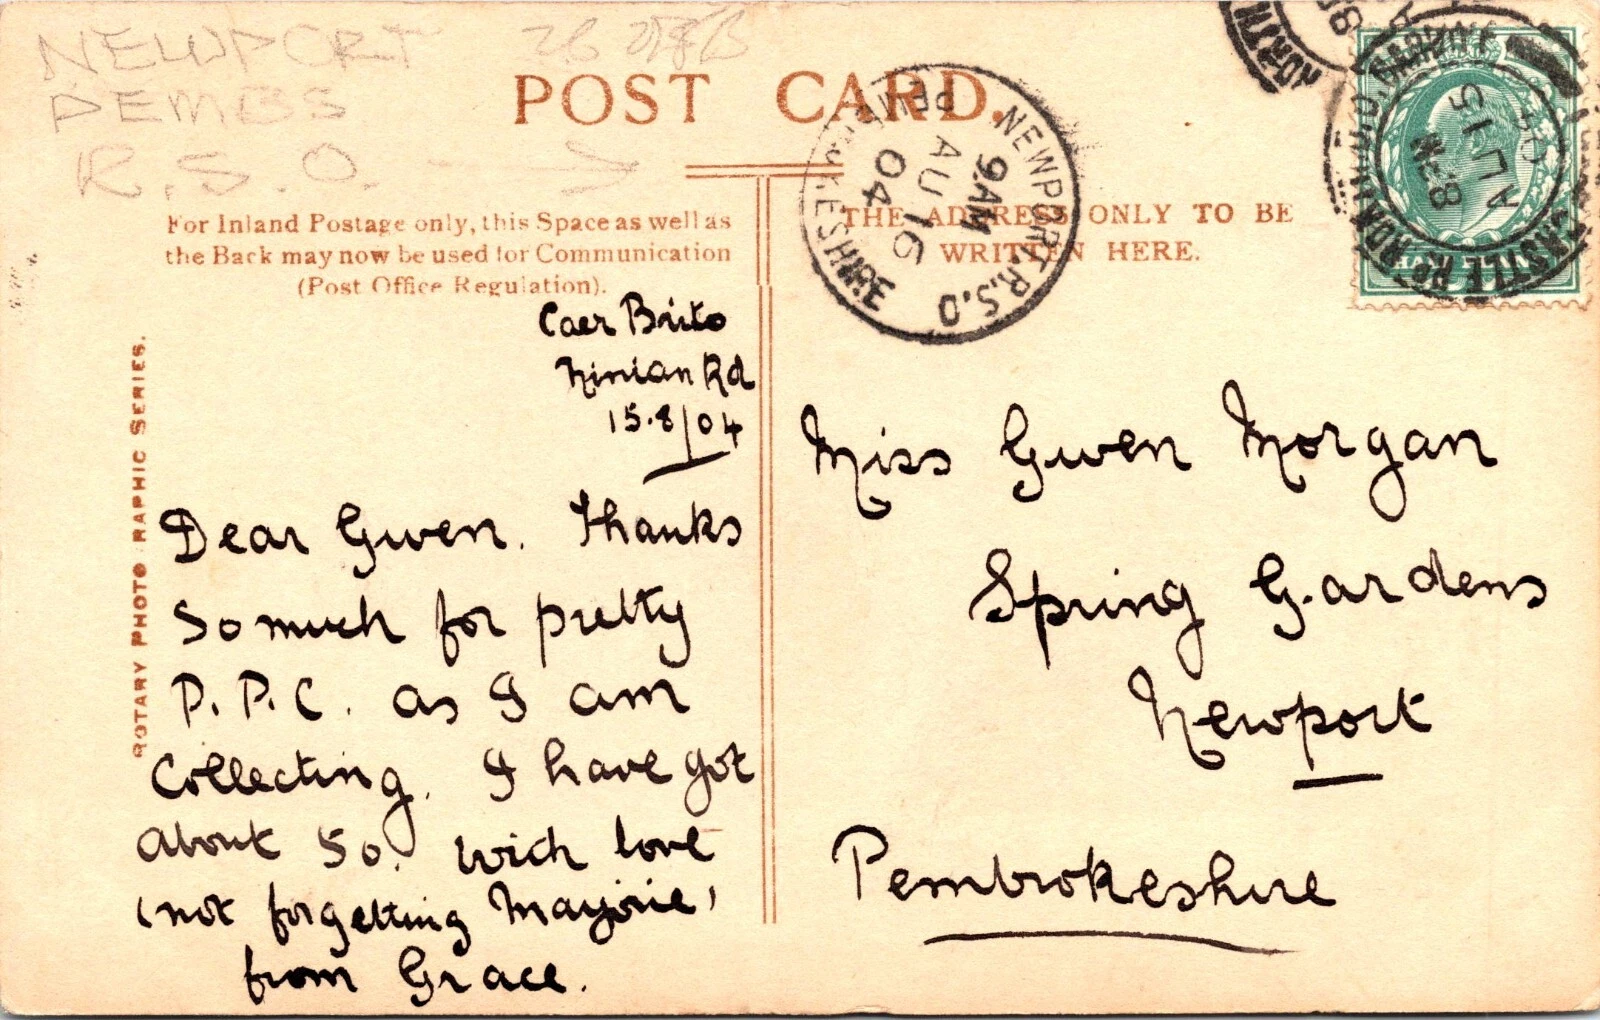 NEWPORT
PEMBS
R.S.O.
POST CARD.
For Inland Postage only, this Space as well as
the Back may now be used for Communication
(Post Office Regulation).
THE ADDRESS ONLY TO BE
WRITTEN HERE.
ROTARY PHOTOGRAPHIC SERIES.
NEWPORT R.S.O
PEMBROKESHIRE
9 AM
AU 16
04
8 PM
AU 15
04
CASTLE RD
HALF PENNY
Caer Brito
Ninian Rd
15.8/04
Dear Gwen. Thanks
so much for pretty
P.P.C. as I am
Collecting. I have got
about 50. With love
(not forgetting Marjorie)
from Grace.
Miss Gwen Morgan
Spring Gardens
Newport
Pembrokeshire